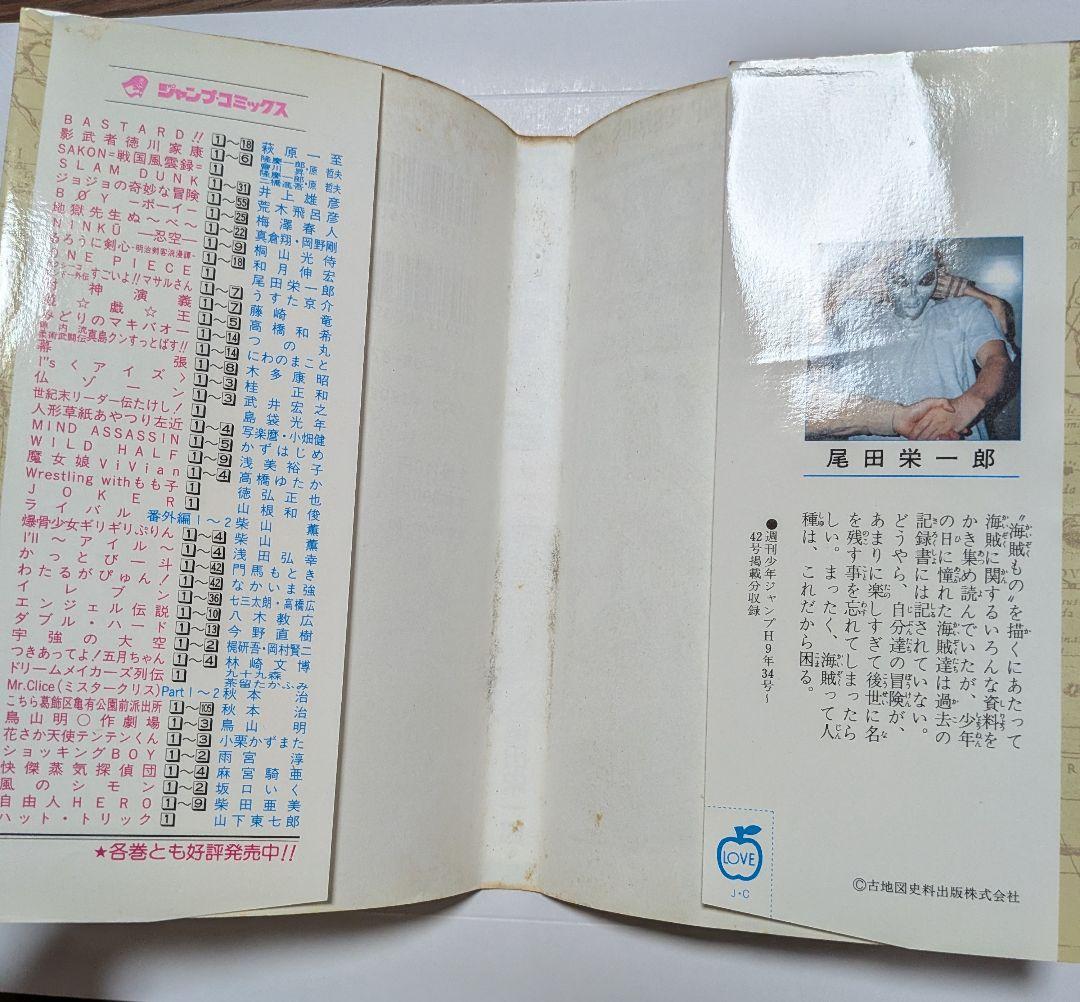 ジャンプ・コミックス
BASTARD!! 1〜18 萩原一至
影武者徳川家康 1〜6 隆慶一郎・原哲夫
SAKON=戦国風雲録= 1
SLAM DUNK 1〜31 井上雄彦
ジョジョの奇妙な冒険 1〜55 荒木飛呂彦
BØY ―ボーイ― 1〜25 梅澤春人
地獄先生ぬ〜べ〜 1〜22 真倉翔・岡野剛
NINKŪ ―忍空― 1〜9 桐山光侍
るろうに剣心-明治剣客浪漫譚- 1〜18 和月伸宏
ONE PIECE 1 尾田栄一郎
すごいよ!!マサルさん 1〜7 うすた京介
封神演義 1〜7 藤崎竜
遊☆戯☆王 1〜5 高橋和希
みどりのマキバオー 1〜14 つの丸
真島クンすっとばす!! 1〜14 にわのまこと
幕張 1〜8 木多康昭
I"s〈アイズ〉 1〜3 桂正和
仏ゾーン 1〜3 武井宏之
世紀末リーダー伝たけし! 1 島袋光年
人形草紙あやつり左近 1〜4 写楽麿・小畑健
MIND ASSASSIN 1〜5 かずはじめ
WILD HALF 1〜9 浅美裕子
魔女娘ViVian 1〜4 高橋ゆたか
Wrestling withもも子 1 徳弘正也
JOKER 1 山根和俊
ライバル 番外編1〜2 柴山薫
爆骨少女ギリギリぷりん 1〜4 柴山薫
I'll 〜アイル〜 1〜4 浅田弘幸
かっとび一斗 1〜42 門馬もとき
わたるがぴゅん! 1〜42 なかいま強
イレブン 1〜36 七三太朗・高橋広
エンジェル伝説 1〜10 八木教広
ダブル・ハード 1〜13 今野直樹
宇強の大空 1〜2 梶研吾・岡村賢二
つきあってよ!五月ちゃん 1〜4 林崎文博
ドリームメイカーズ列伝 1 九十九森 茶留たかふみ
Mr.Clice(ミスタークリス)Part1〜2 秋本治
こちら葛飾区亀有公園前派出所 1〜105 秋本治
鳥山明○作劇場 1〜3 鳥山明
花さか天使テンテンくん 1〜3 小栗かずまた
ショッキングBOY 1〜2 雨宮淳
快傑蒸気探偵団 1〜4 麻宮騎亜
風のシモン 1〜2 坂口いく
自由人HERO 1〜9 柴田亜美
ハット・トリック 1 山下東七郎
★各巻とも好評発売中!!
尾田栄一郎
"海賊もの"を描くにあたって
海賊に関するいろんな資料を
かき集め読んでいたが、少年
の日に憧れた海賊達は過去の
記録書には記されていない。
どうやら、自分達の冒険が、
あまりに楽しすぎて後世に名
を残す事を忘れてしまったら
しい。まったく、海賊って人
種は、これだから困る。
●週刊少年ジャンプH9年34号〜
42号掲載分収録
LOVE
J・C
©古地図史料出版株式会社